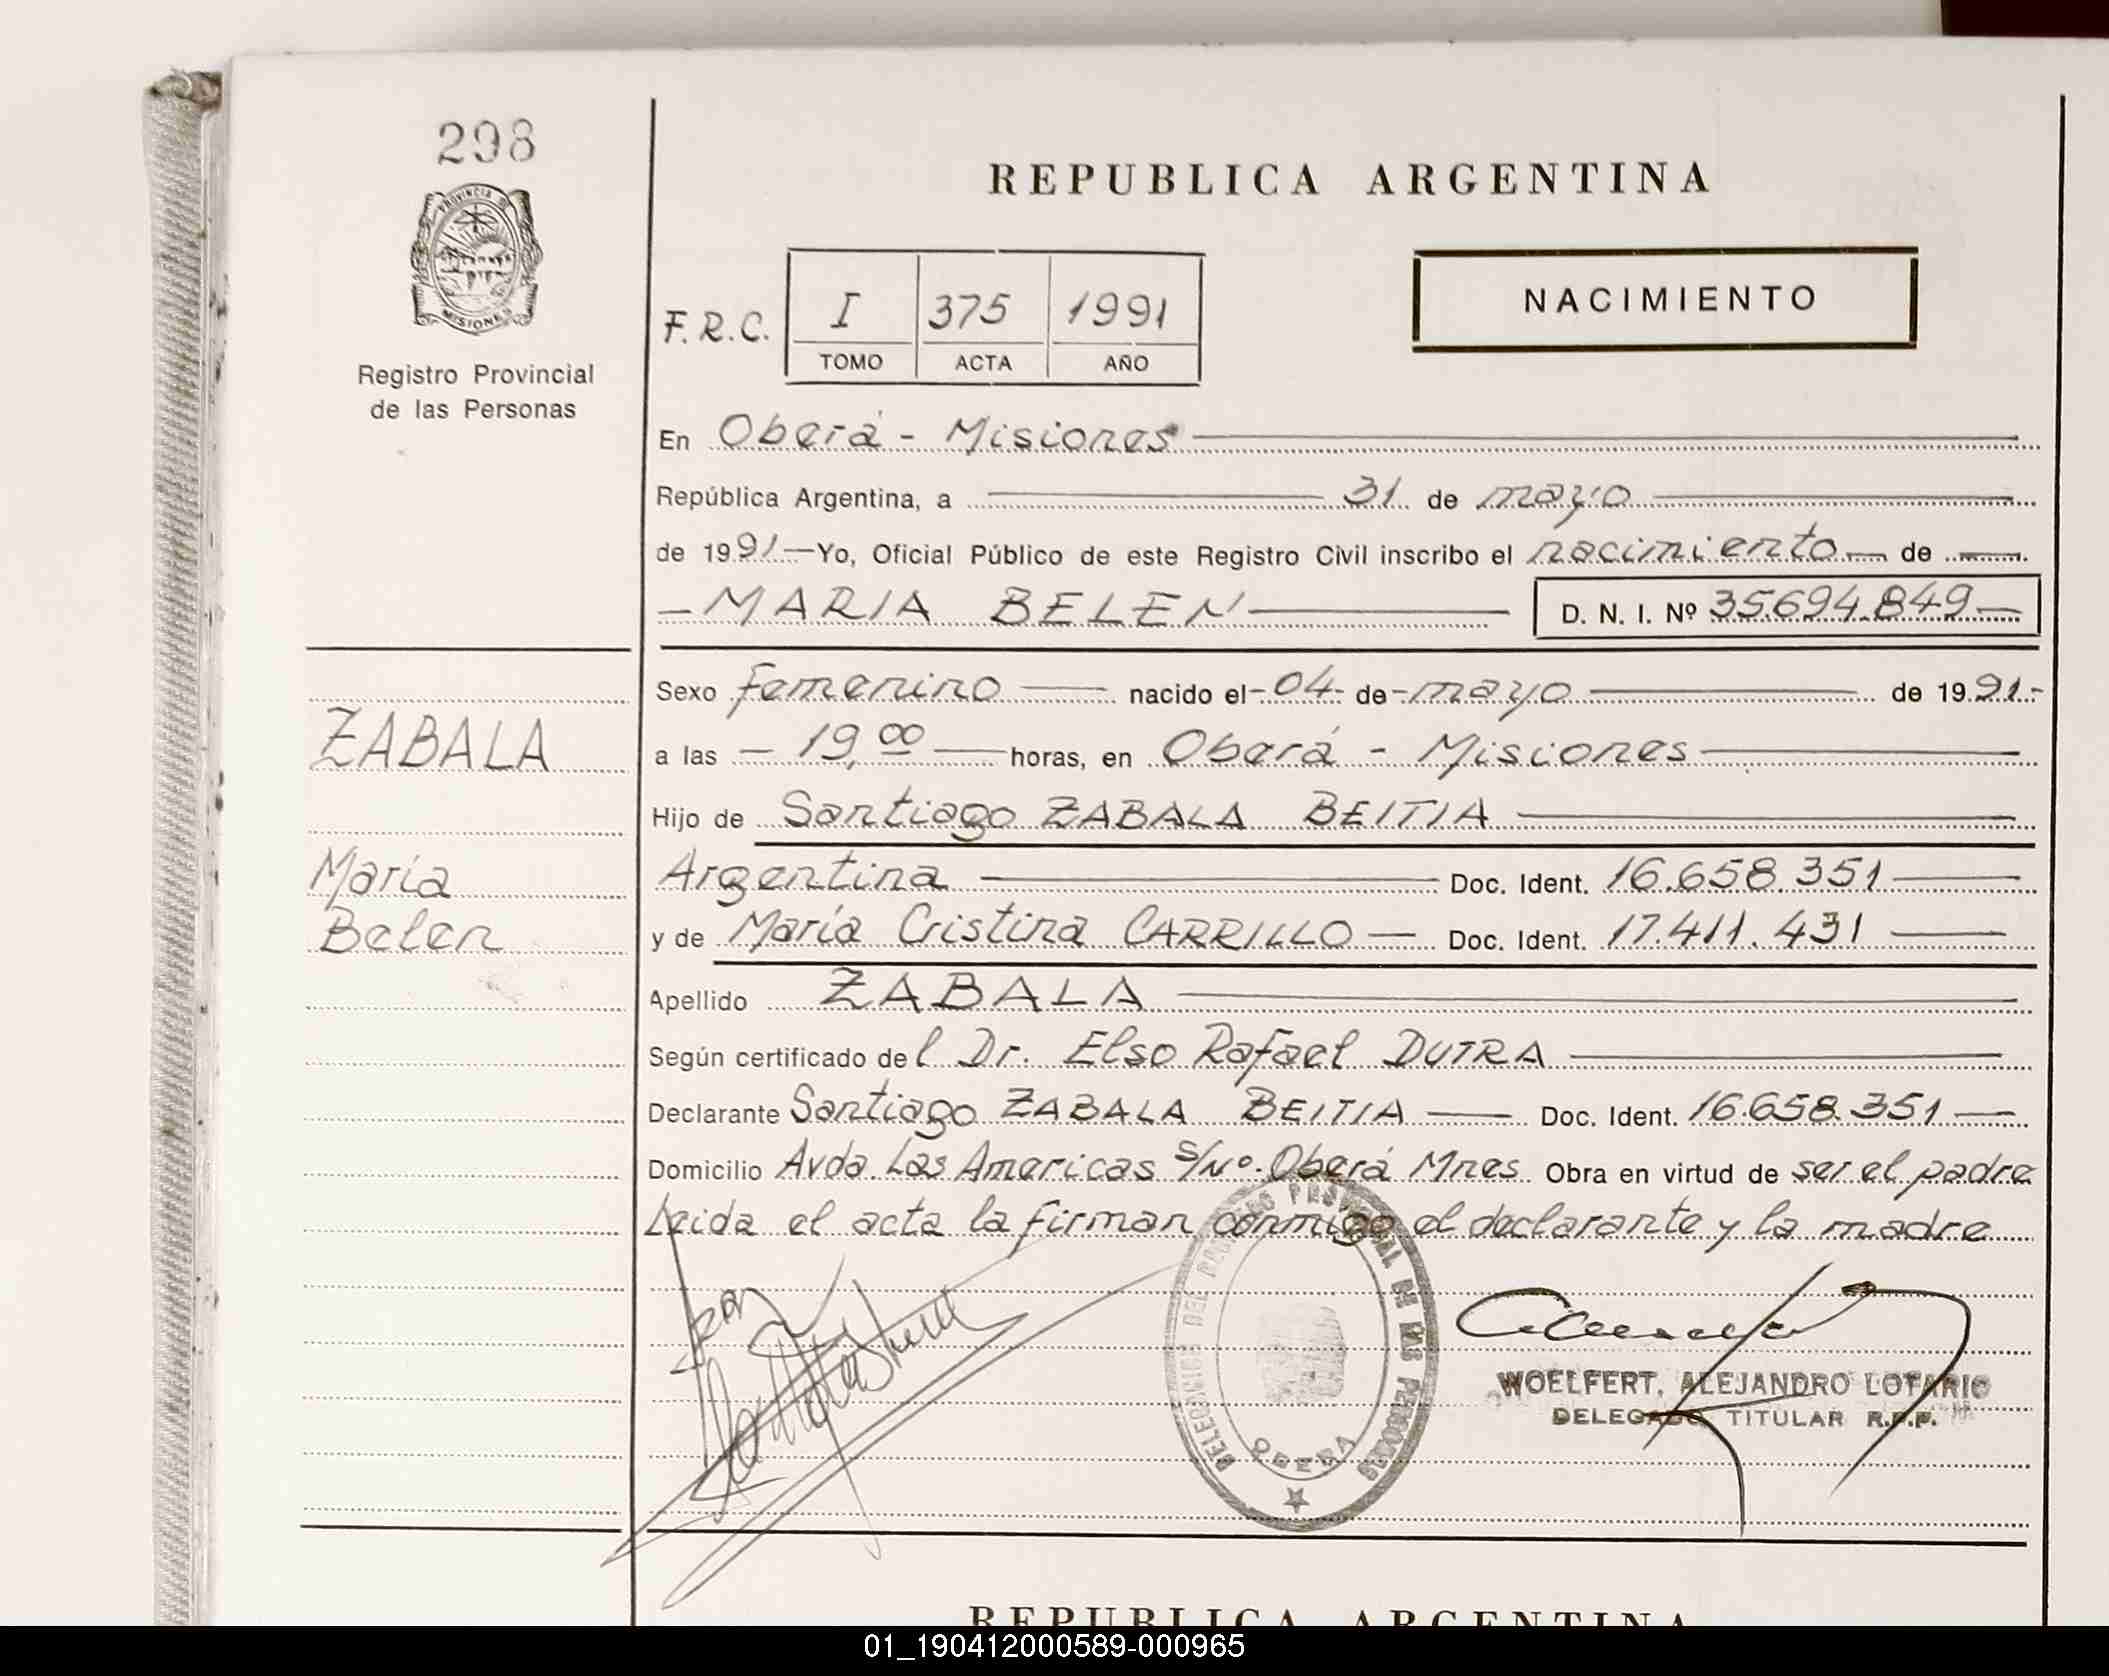 298
PROVINCIA DE
MISIONES
Registro Provincial
de las Personas
REPUBLICA ARGENTINA
F.R.C.
I 375 1991
TOMO ACTA AÑO
NACIMIENTO
En Oberá - Misiones
República Argentina, a 31 de mayo
de 1991 Yo, Oficial Público de este Registro Civil inscribo el nacimiento de
MARIA BELEN D. N. I. Nº 35.694.849
Sexo femenino nacido el 04 de mayo de 1991
a las 19,00 horas, en Oberá - Misiones
ZABALA
Hijo de Santiago ZABALA BEITIA
María
Argentina Doc. Ident. 16.658.351
Belen
y de María Cristina CARRILLO Doc. Ident. 17.411.431
Apellido ZABALA
Según certificado del Dr. Elso Rafael DUTRA
Declarante Santiago ZABALA BEITIA Doc. Ident. 16.658.351
Domicilio Avda. Las Americas S/Nº. Oberá Mnes. Obra en virtud de ser el padre
Leida el acta la firman conmigo el declarante y la madre
DELEGACION DEL REGISTRO PROVINCIAL DE LAS PERSONAS
OBERA
WOELFERT, ALEJANDRO LOTARIO
DELEGADO TITULAR R.P.P.
REPUBLICA ARGENTINA
01_190412000589-000965